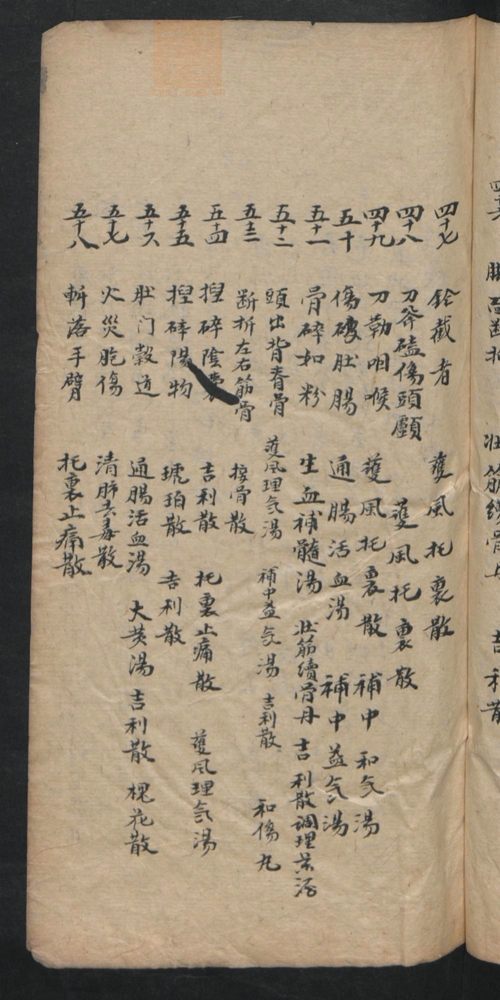 四十七 截者 護風托裏散
四十八 刀斧磕傷頭顱 護風托裏散
四十九 刀勒咽喉 護風托裏散 補中和气湯
五十 傷破肚腸 通腸活血湯 補中益气湯
五十一 骨碎如粉 生血補髓湯 壯筋續骨丹 吉利散調理
五十二 頭出背脊骨 護風理气湯 補中益气湯 吉利散 和傷丸
五十三 斷折左右筋骨 接骨散
五十四 捏碎陰囊 吉利散 托裏止痛散 護風理气湯
五十五 捏碎陽物 琥珀散 吉利散
五十六 肚门穀道 通腸活血湯 大黄湯 吉利散 槐花散
五十七 火災胞傷 清肺去毒散
五十八 斬落手臂 托裏止痛散